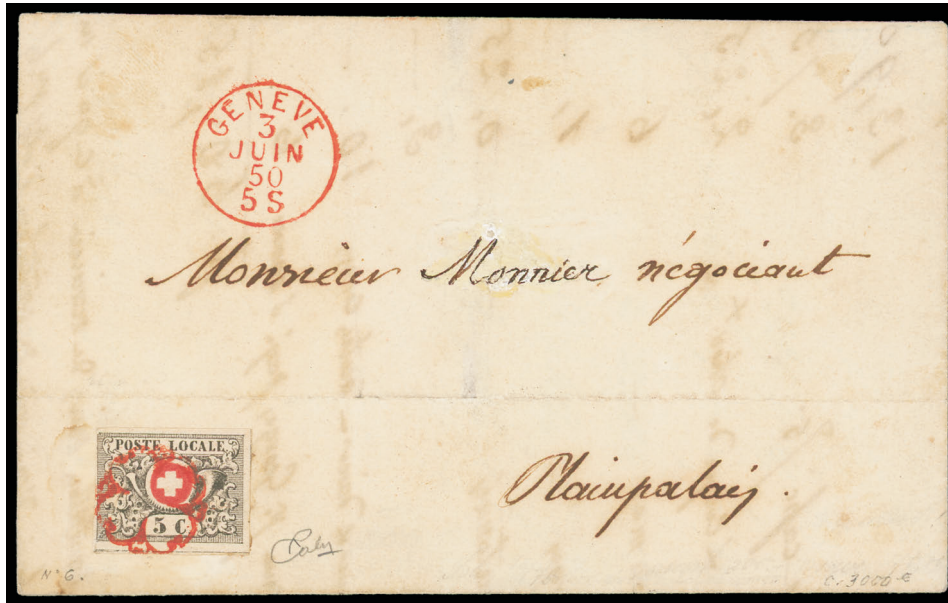 GENEVE
3
JUIN
50
5 S
Monsieur Monnier négociant
Plainpalais.
POSTE LOCALE
5 C
N° 6.
C. 3000 €